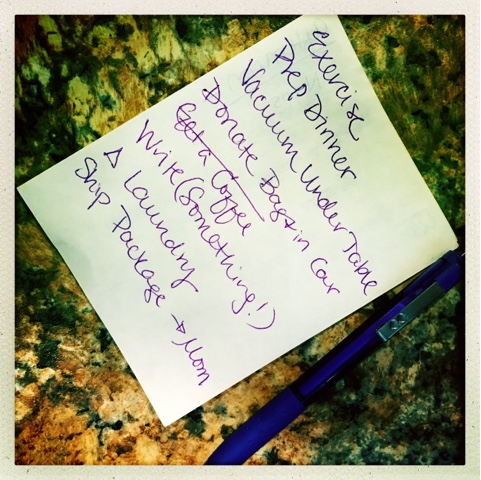 Exercise
Prep Dinner
Vacuum Under Table
Donate Bags in Car
Get a Coffee
Write (Something!)
Δ Laundry
Ship Package → Mom